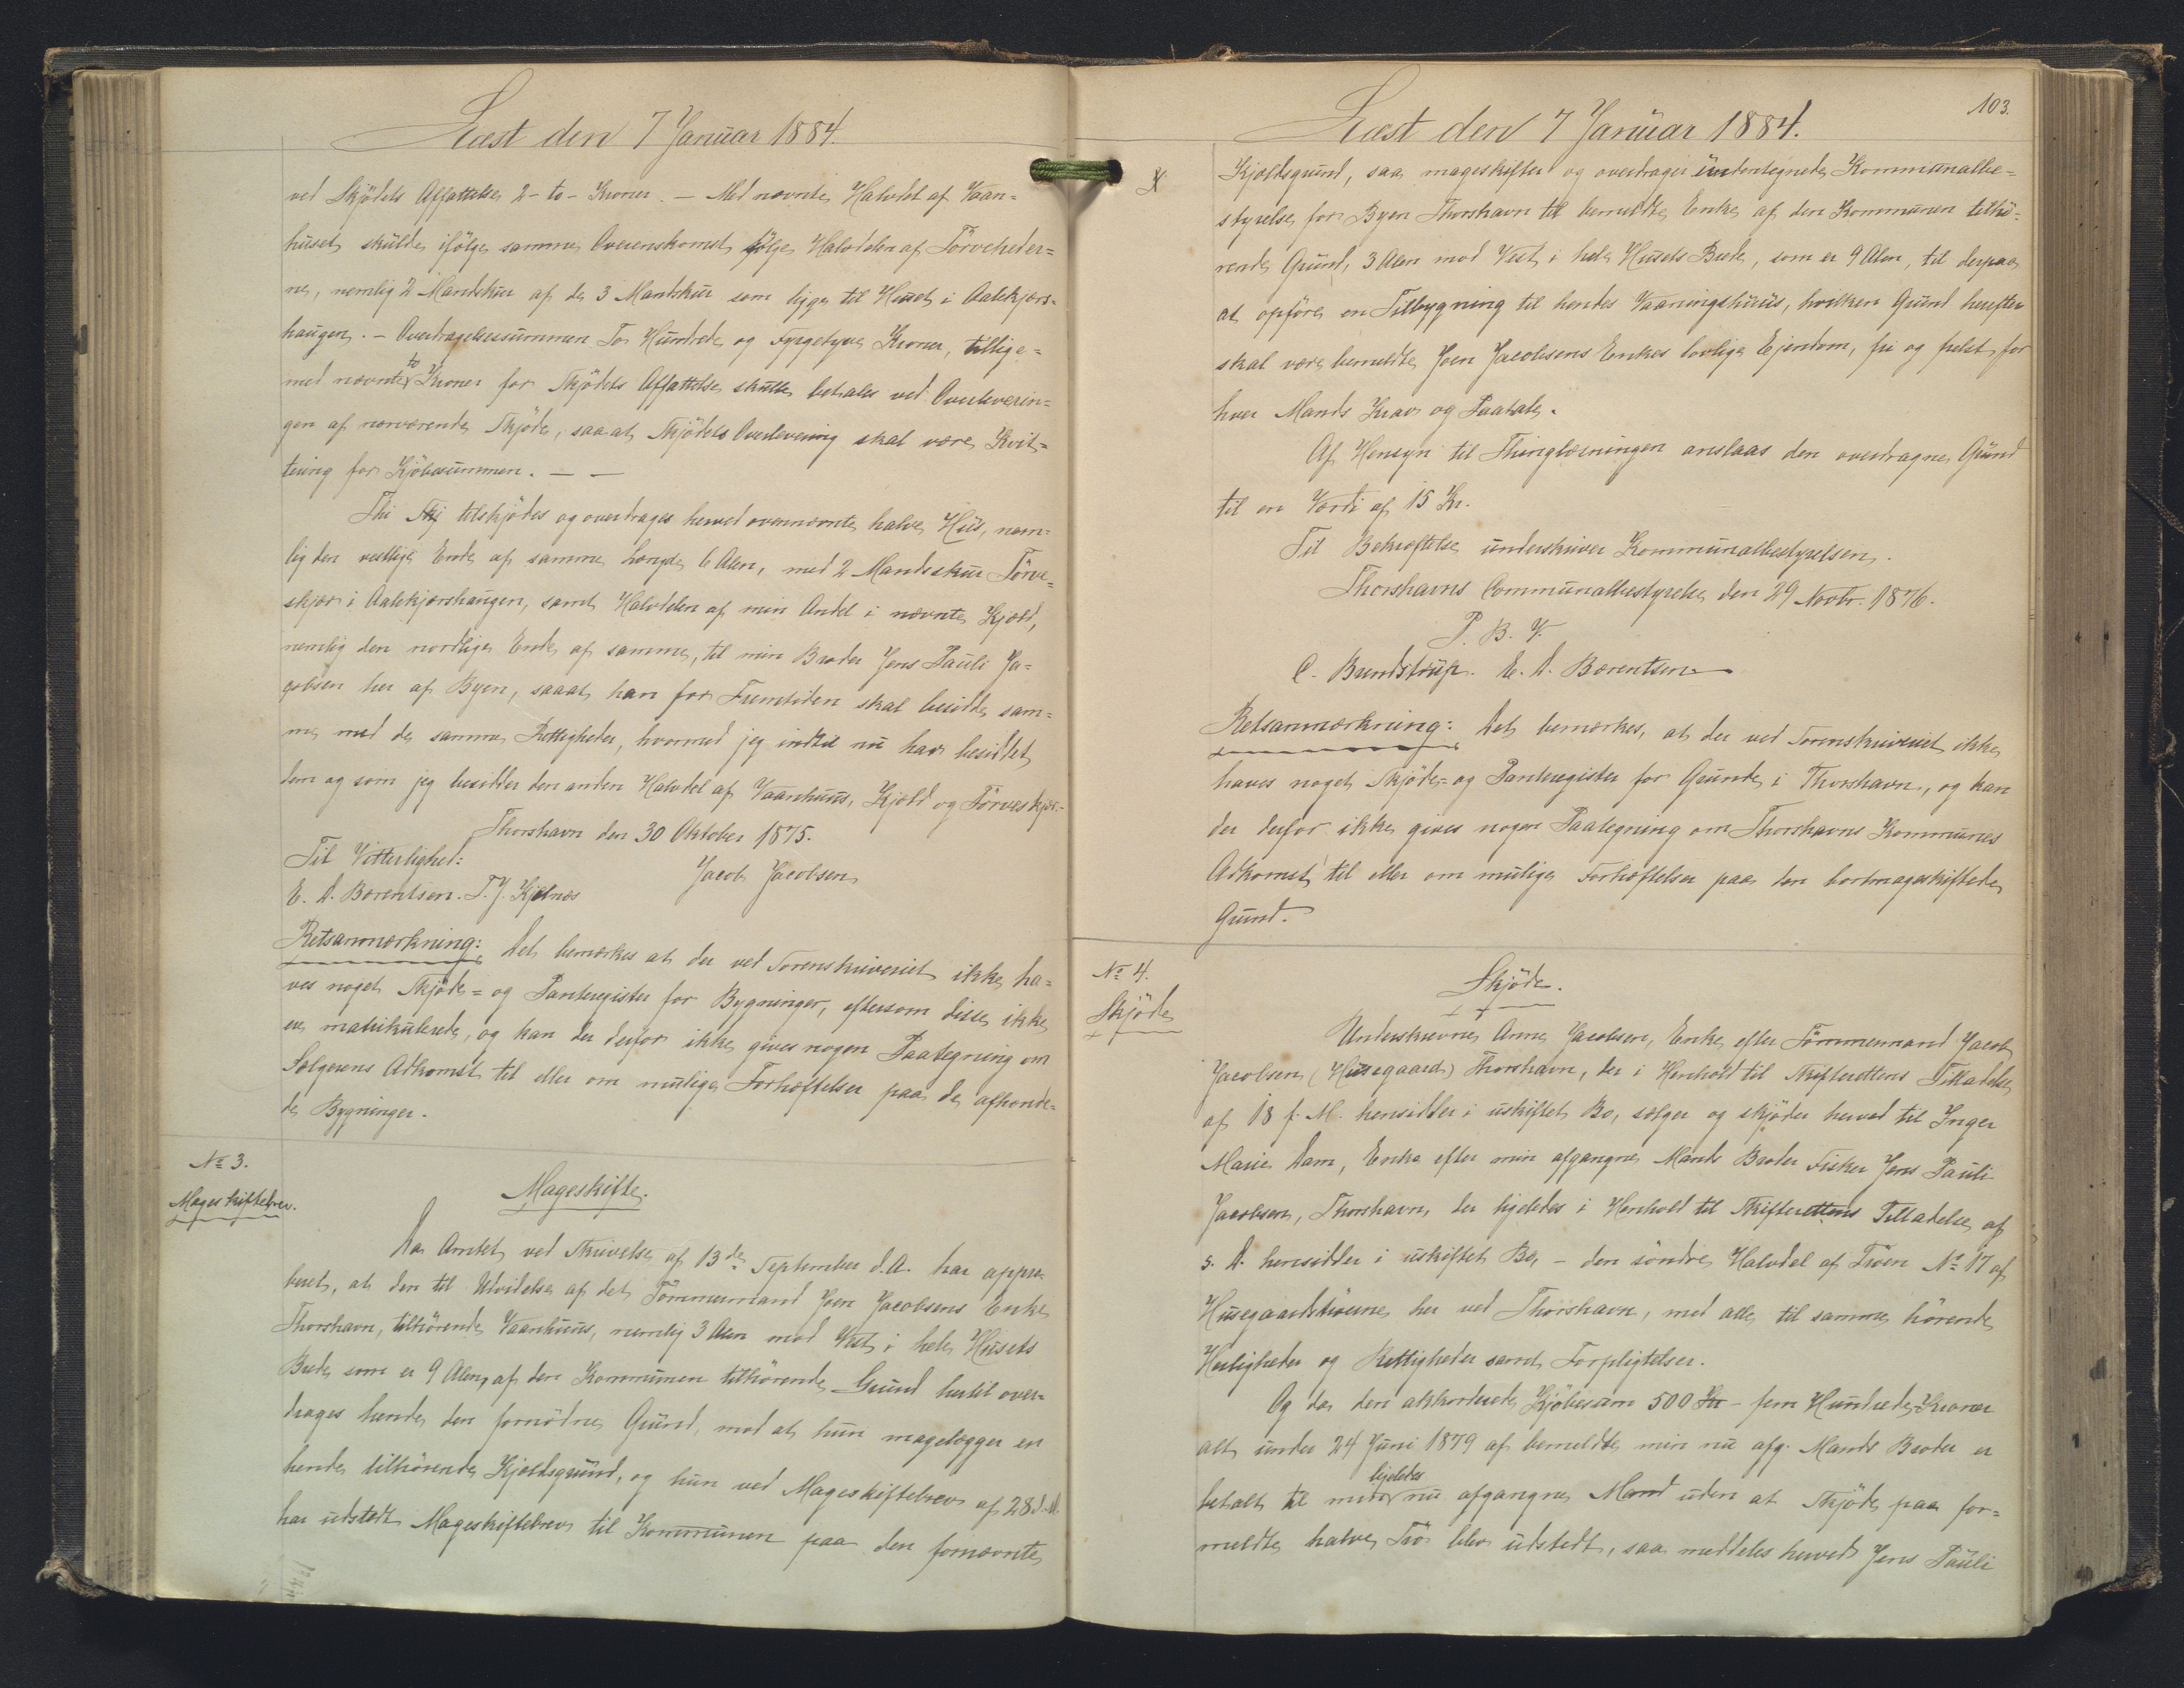 Læst den 7 Januar 1884.
ved Skjödets Affattelse 2 - to - Kroner. - Med nævnte Halvdel af Vaan=
huset skulde ifölge samme Overenskomst fölge Halvdelen af Törveheder=
ne, nemlig 2 Mandskur af de 3 Mandskur som ligge til Huset i Aalekjærs=
haugen. - Overdragelsessummen To Hundrede og Fyrgetyve Kroner, tillige=
med nævnte to Kroner for Skjödets Affattelse skulle betales ved Overleverin=
gen af nærværende Skjöde, saa at Skjödets Overlevering skal være Kvit=
tering for Kjöbesummen. - -
Thi tilskjödes og overdrages herved ovennævnte halve Hus, nem=
lig den vestlige Ende af samme Længde 6 Alen, med 2 Mandsskur Törve=
skjær i Aalekjærshaugen, samt Halvdelen af min Andel i nævnte Kjæld,
nemlig den nordlige Ende af samme, til min Broder Jens Pauli Ja=
cobsen her af Byen, saaat han for Fremtiden skal besidde sam=
me med de samme Rettigheder, hvormed jeg indtil nu har besiddet
dem og som jeg besidder den anden Halvdel af Vaanhuus, Kjæld og Törveskjær.-
Thorshavn den 30 Oktober 1875.
Til Vitterlighed:
Jacob Jacobsen
E. D. Bærentsen. T. J. Kjelnæs
Retsanmærkning: Det bemærkes at der ved Sorenskriveriet ikke ha=
ves noget Skjöde= og Panteregister for Bygninger, eftersom disse ikke
ere matrikulerede, og kan der derfor ikke gives nogen Paategning om
Sælgerens Adkomst til eller om mulige Forhæftelser paa de afhænde=
de Bygninger.
No 3.
Mageskiftebrev.
Mageskifte.
Da Amtet ved Skrivelse af 13de September d.A. har appro=
beret, at den til Udvidelse af det Tömmermand Joen Jacobsens Enke
Thorshavn, tilhörende Vaanhuus, nemlig 3 Alen mod Vest i hele Husets
Brede som er 9 Alen, af den Kommunen tilhörende Grund hertil over=
drages hende den fornödne Grund, mod at hun magelægger en
hende tilhörende Kjældsgrund, og hun ved Mageskiftebrev af 28 d.M.
har udstedt Mageskiftebrev til Kommunen paa den fornævnte
103.
Læst den 7 Januar 1884.
Kjældsgrund, saa mageskifter og overdrager undertegnede Kommunalbe=
styrelse for Byen Thorshavn til bemeldte Enke af den Kommunen tilhö=
rende Grund, 3 Alen mod Vest i hele Husets Brede, som er 9 Alen, til derpaa
at opföre en Tilbygning til hendes Vaaningshuus, hvilken Grund herefter
skal være bemeldte Joen Jacobsens Enkes lovlige Ejendom, fri og frelst for
hver Mands Krav og Paatale.
Af Hensyn til Thinglæsningen anslaas den overdragne Grund
til en Værdi af 15 Kr.
Til Bekræftelse underskriver Kommunalbestyrelsen.
Thorshavns Communalbestyrelse den 29 Novbr. 1876.
P. B. V.
C. Bundstrup. E. D. Bærentsen
Retsanmærkning: Det bemærkes, at der ved Sorenskriveriet ikke
haves noget Skjöde= og Panteregister for Grunde i Thorshavn, og kan
der derfor ikke gives nogen Paategning om Thorshavns Kommunes
Adkomst til eller om mulige Forhæftelser paa den bortmageskiftede
Grund.
No 4.
Skjöde
Skjöde.
Underskrevne Anne Jacobsen, Enke efter Tömmermand Jacob
Jacobsen (Husegaard) Thorshavn, der i Henhold til Skifterettens Tilladelse
af 18 f. M. hensidder i uskiftet Bo, sælger og skjöder herved til Inger
Marie Dam, Enke efter min afgangne Mands Broder Fisker Jens Pauli
Jacobsen, Thorshavn, der ligeledes i Henhold til Skifterettens Tilladelse af
s. D. hensidder i uskiftet Bo, - den söndre Halvdel af Tröen No 17 af
Husegaardströerne her ved Thorshavn, med alle til samme hörende
Herligheder og Rettigheder samt Forpligtelser.
Og da den akkorderede Kjöbesum 500 Kr - fem Hundrede Kroner
alt under 24 Juni 1879 af bemeldte min nu afg. Mands Broder er
betalt til min ligeledes nu afgangne Mand uden at Skjöde paa for=
meldte halve Trö blev udstedt, saa meddeles herved Jens Pauli